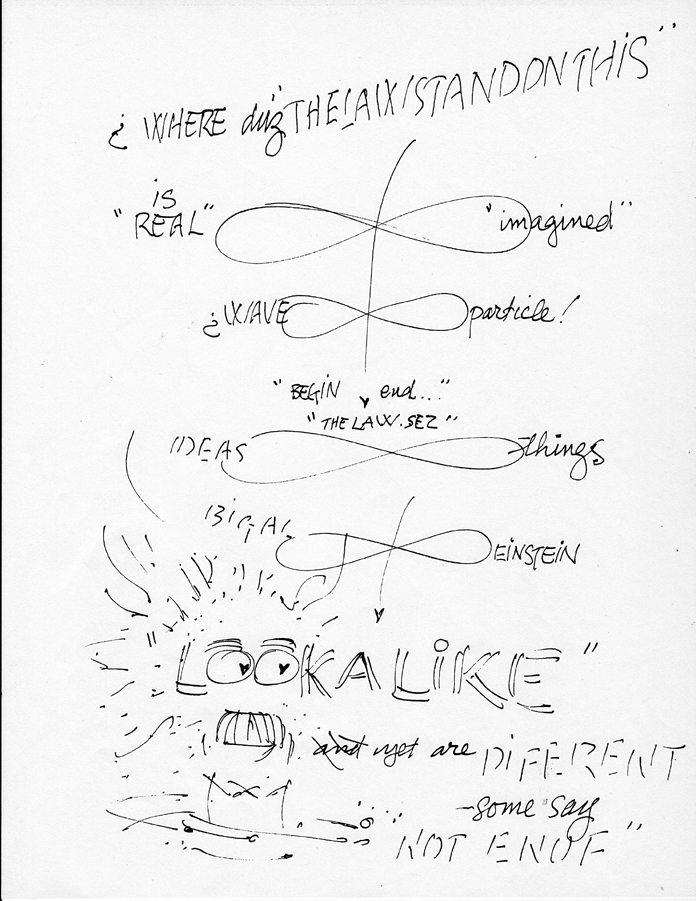 ¿ WHERE duz "THE LAW STAND ON THIS"
"IS REAL" "imagined"
¿WAVE particle!
"BEGIN end..."
"THE LAW. SEZ"
IDEAS things
BIG AL EINSTEIN
LOOKALIKE"
and yet are DIFFERENT
-some say
"NOT ENUF"